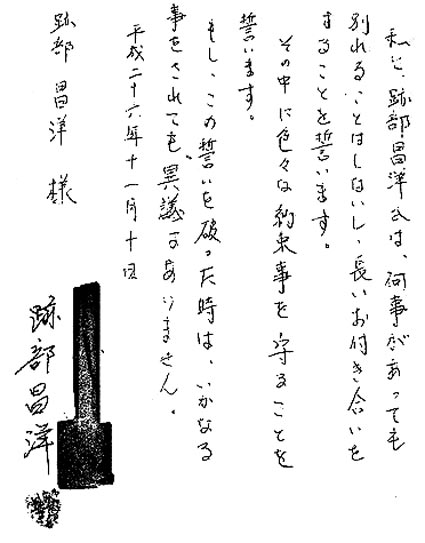 私と、跡部昌洋氏は、何事があっても
別れることはしないし、長いお付き合いを
することを誓います。
その中に色々な約束事を守ることを
誓います。
もし、この誓いを破った時は、いかなる
事をされても、異議はありません。
平成二十六年十一月十日
跡部昌洋様
跡部昌洋